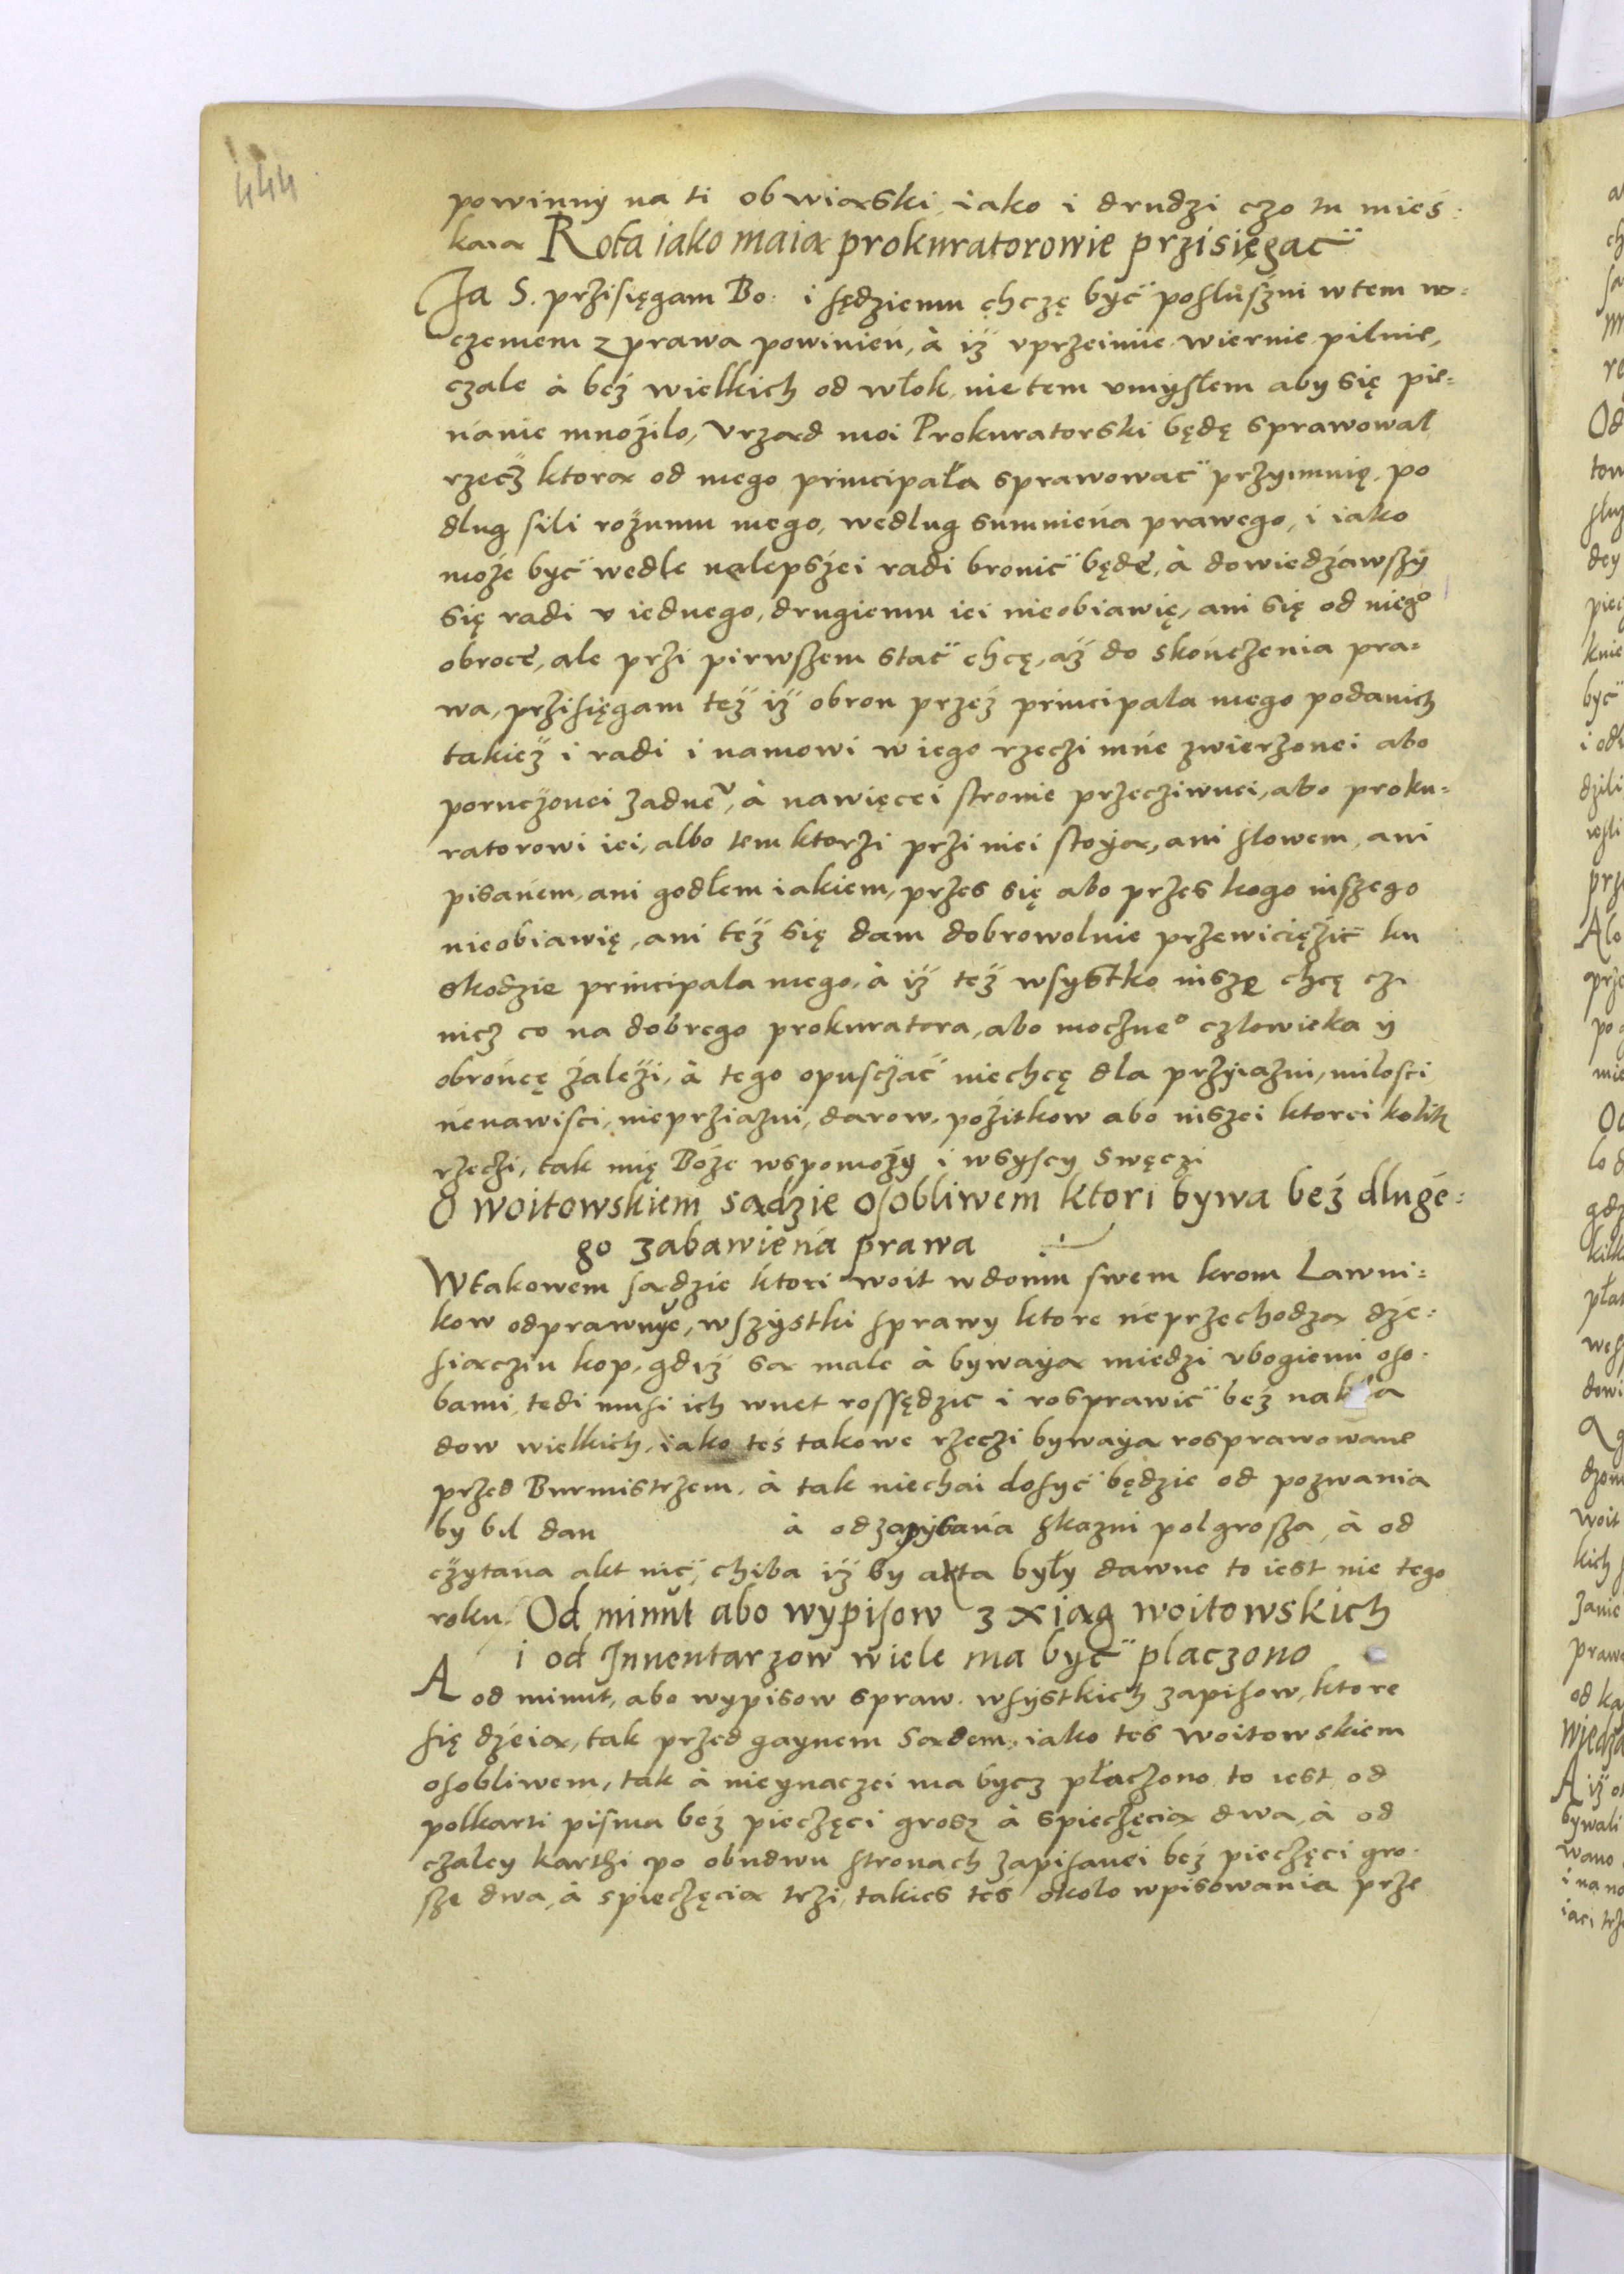 444
powinny na ti obwiąski, iako i drudzi czo tu mies:
kaią Rota iako maią prokuratorowie przisięgać
Ja S. przisięgam Bo: i sędziemu chczę być posłuszni w tem w
czemem z prawa powinień, à iż vprzeimie wiernie pilnie,
czale à bez wielkich od włok, nie tem vmysłem aby się pie=
nánie mnożilo, Vrząd moi Prokuratorski będę sprawował
rzecz ktorą od mego principała sprawować przyimuię, po
dlug sili rozumu mego, wedlug sumniena prawego, i iako
może być wedle nalepszei radi bronić będę, à dowiedzáwszy
się radi v iednego, drugiemu iei nieobiawię, ani się od niego
obrocę, ale przi pirwszem stać chcę, áż do skończenia pra=
wa, przisięgam też iż obron przez principala mego podanich
takież i radi i namowi w iego rzeczi mńe zwierzonei abo
poruczonei żadneͮ, à nawięcei stronie przecziwnei, abo proku=
ratorowi iei, albo tem ktorzi przi niei stoyą, ani slowem, ani
pisańem, ani godłem iakiem, przes się abo przes kogo inszego
nieobiawię, ani też się dam dobrowolnie przewiciężić ku
skodzie principala mego, à iż też wsystko inszę chcę czi
nicz co na dobrego prokuratora, abo moczneᵒ czlowieka ÿ
obrońcę záleżi, à tego opuszczáć niechcę dla przyiazni, milosci
nénawisci, nieprziazni, darow, pożitkow abo niszei ktorei kolik
rzeczi, tak mię Boże wspomoży i wsyscy swęczi
O woitowskiem sądzie osobliwem ktori bywa bez dluge:
go zabawiena prawa
W takowem sądzie ktori woit w domu swem krom Lawni=
kow odprawuye, wszystki sprawy ktore neprzechodzą dze:
siączin kop, gdiż są male à bywayą miedzi vbogiemi oso.
bami, tedi musi ich wnet rossędzic i rosprawić bez nakła
dow wielkich, iako tes takowe rzeczi bywayą rosprawowane
przed Burmistrzem, à tak niechai dosyć będzie od pozwania
by bil dan à od zapysańa skazni polgrosza, à od
czytańa akt nic, chiba iż by akta były dawne to iest nie tego
roku. Od minut abo wypisow z xiąg woitowskich
i od Inuentarzow wiele ma być placzono
A od minut, abo wypisow spraw, wsystkich zapisow, ktore
się dzeią, tak przed gaynem Sądem, iako tes woitowskiem
osobliwem, tak à nieynaczei ma bycz płaczono to iest od
polkarti pisma bez pieczęci grosz à spieczęcią dwa, à od
czaley karthi po obudwu stronach zapisanei bez pieczęci gro.
sze dwa, à spieczęcią trzi, takies tes okolo wpisowania prze